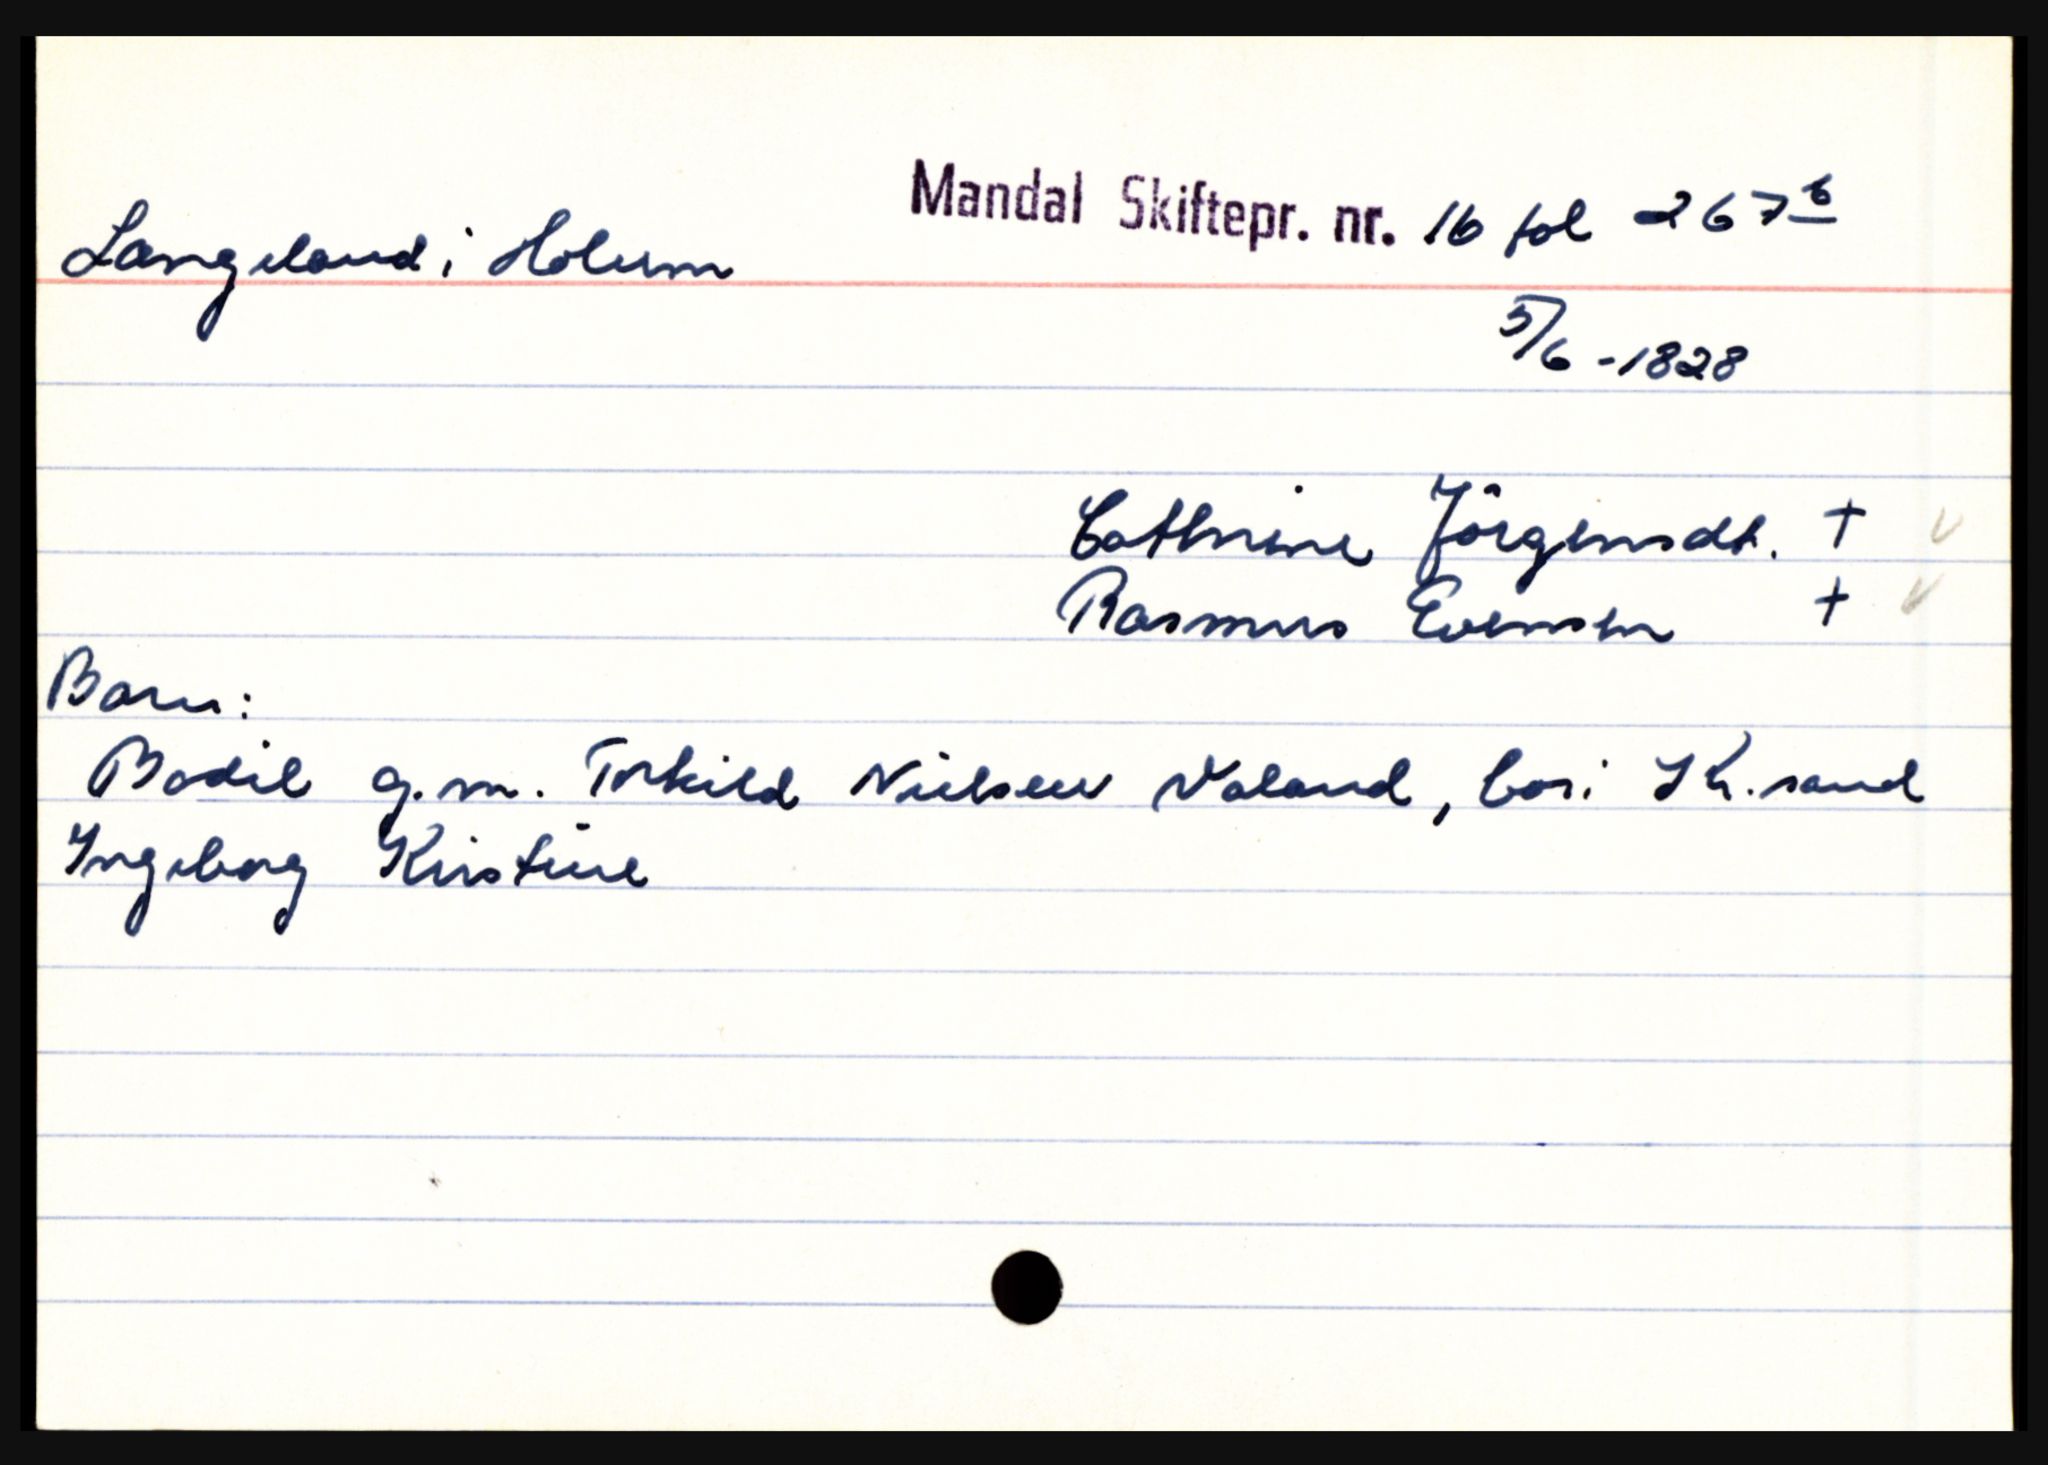 Mandal Skiftepr. nr. 16 fol 267 b
Langeland i Holum
5/6 - 1828
Cathrine Jörgensdt. †
Rasmus Evensen †
Barn:
Bodil g.m. Torkild Nielsen Valand, bor i Kr.sand
Ingeborg Kirstine